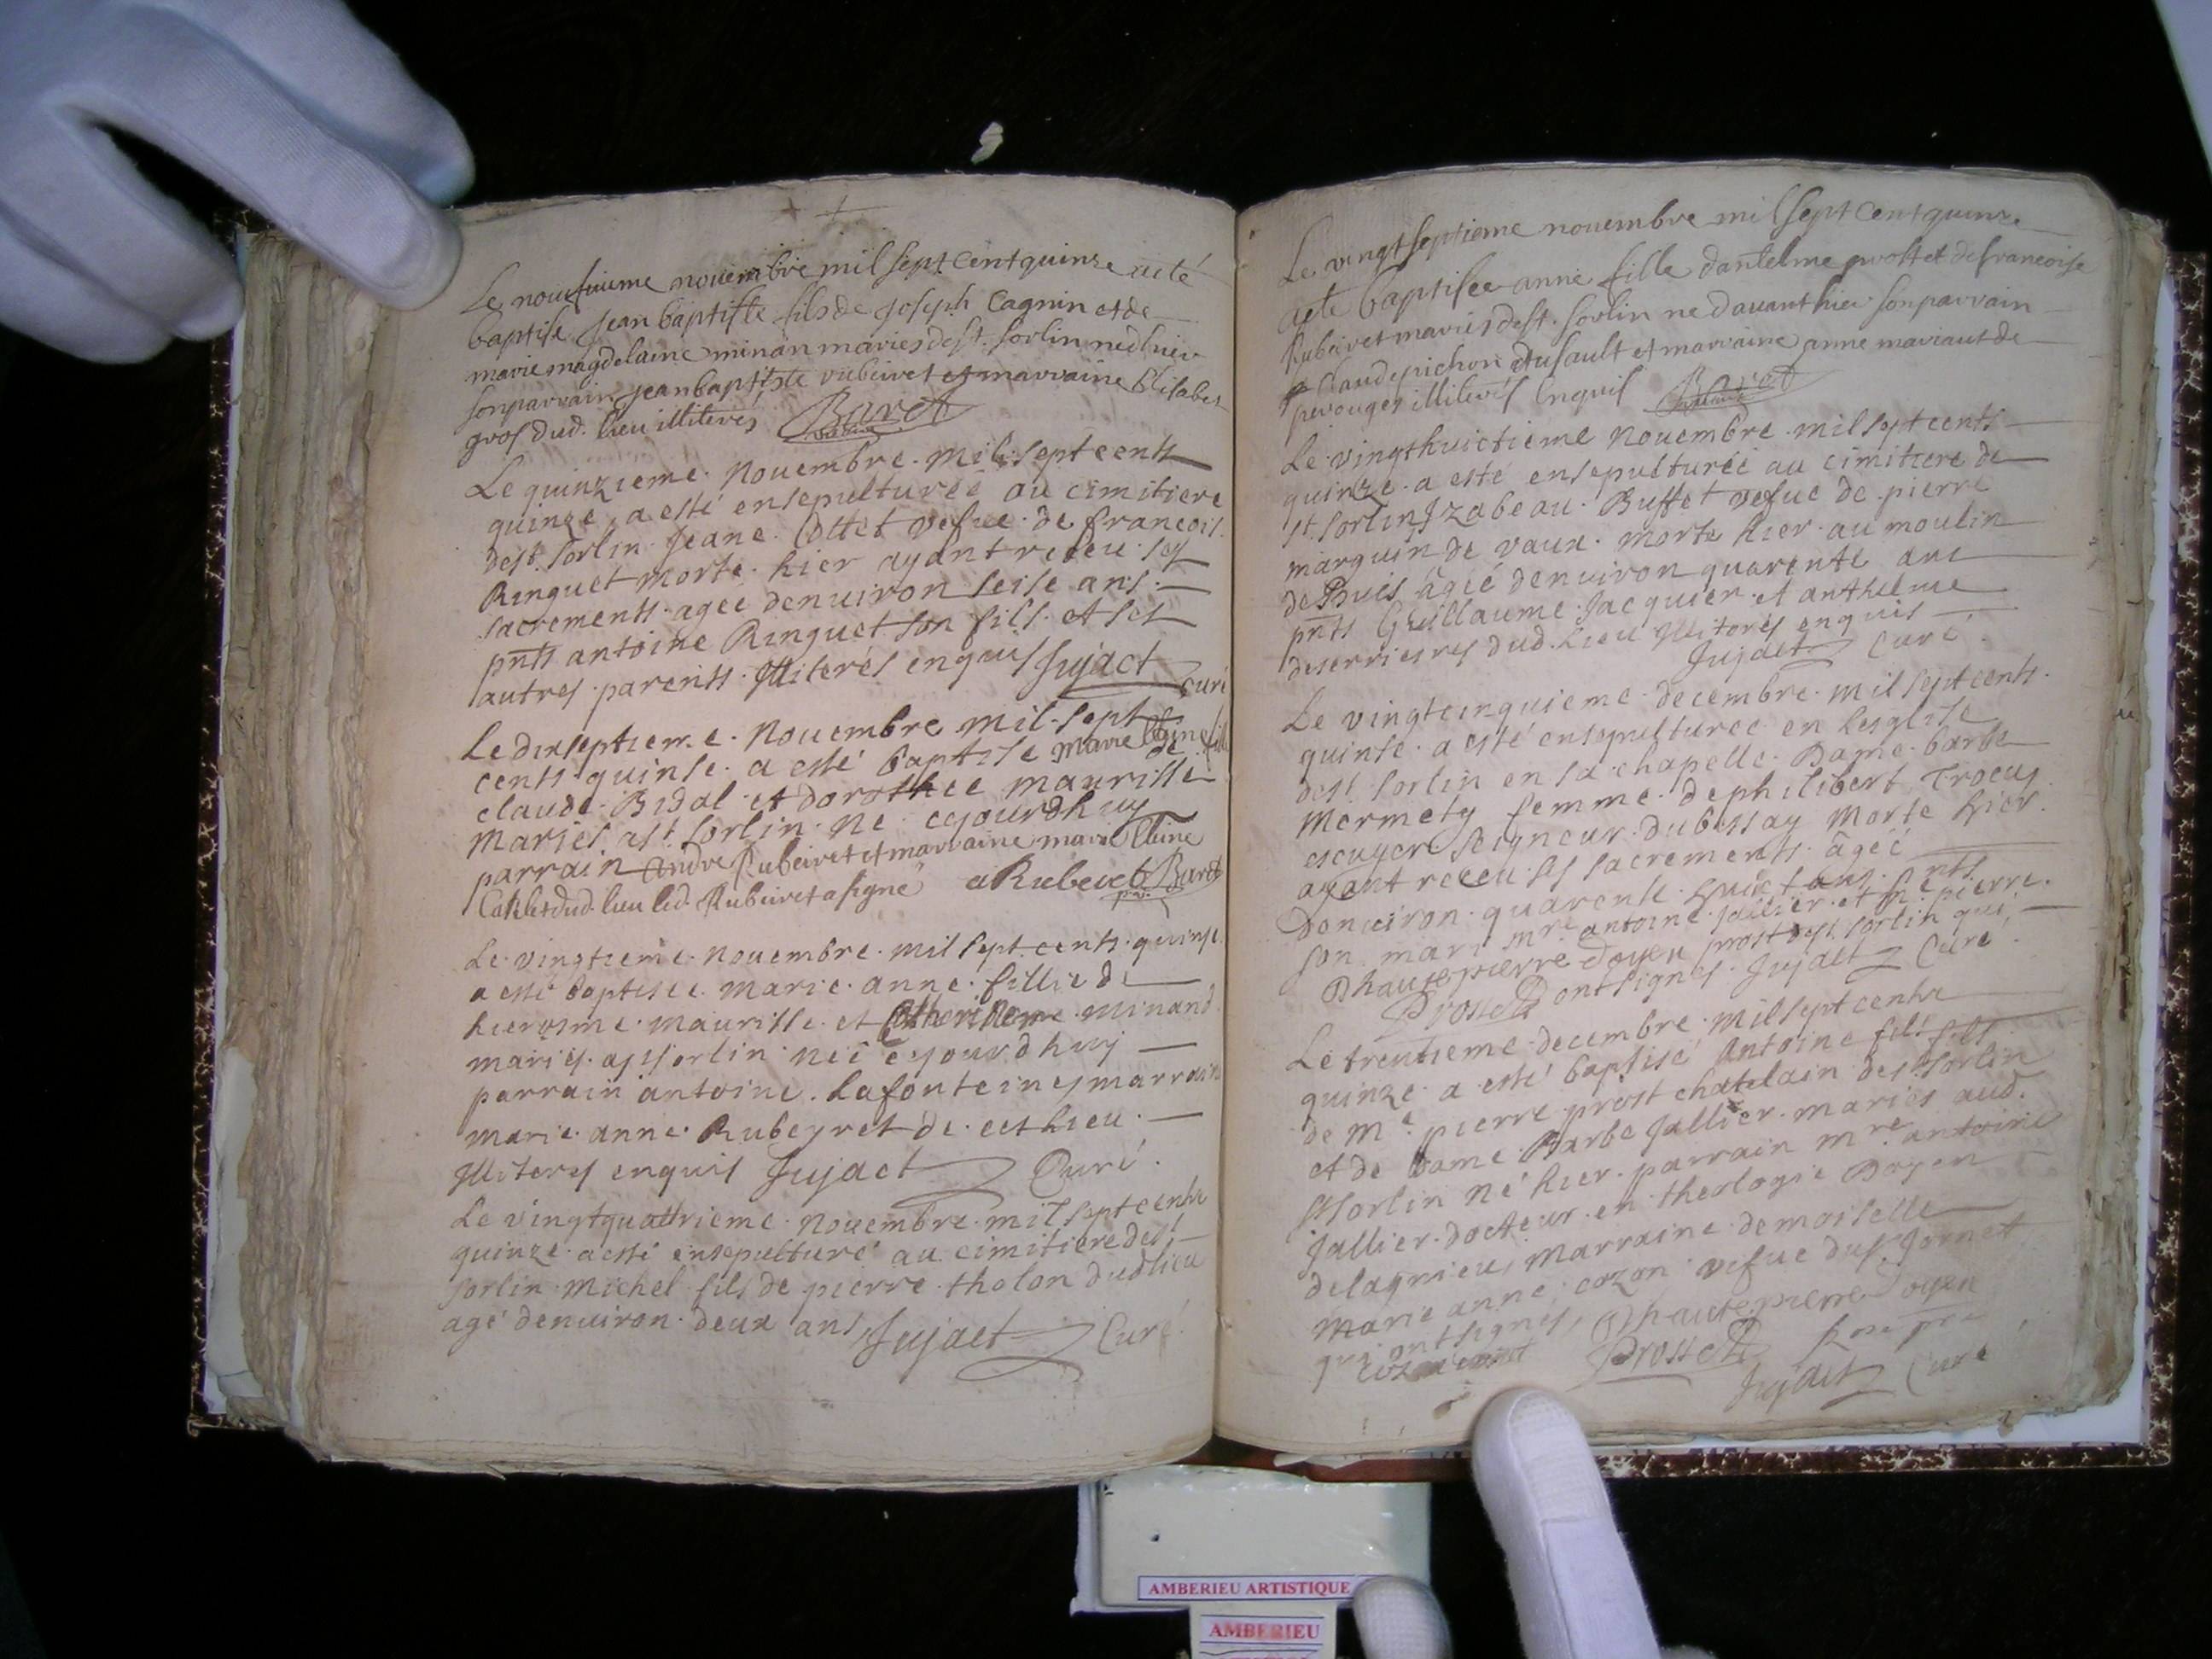 Le neufuieme nouembre mil sept cent quinze a eté
baptisé Jean baptiste fils de Joseph Cagnin et de
marie magdelaine minan mariés de st. sorlin né d'hier
son parrain Jean baptiste rubeiret et marraine Elisabet
gros dud. lieu illiterés Baret
Le quinzieme nouembre mil sept cents
quinze a esté ensepulturée au cimitiere
de st. sorlin Jeane Cottet vefue de francois
Ringuet morte hier ayant receu ses
sacrements agée denuiron seise ans
pnts antoine Ringuet son fils et ses
autres parents Illiterés enquis Jujact curé
Le dixseptieme nouembre mil sept
cents quinse a esté baptisé marie fille
claude Bidal et dorothee maurisse
mariés a st sorlin né cejourdhuy
parrain andre Rubeiret et marraine marie
dud. lieu led. Rubeiret a signé a Rubeiret Baret
Le vingtieme nouembre mil sept cents quinse
a esté baptisée marie anne fillie de
hierosme maurisse et minand
mariés a st sorlin née cejourdhuy
parrain antoine Lafonteine marraine
marie anne Rubeyret de cet lieu
Illiterés enquis Jujact Curé
Le vingtquattrieme nouembre mil sept cents
quinze a esté ensepulturé au cimitiere de st
sorlin michel fils de pierre tholon dudlieu
agé denuiron deux ans Jujact Curé
Le vingt septieme nouembre mil sept cent quinze
a ete baptisee anne fille dantelme prost et de francoise
Rubeiret mariés de st. sorlin ne dauant hier son parrain
Claude pichon du sault et marraine anne mariaut de
perouges illiterés Enquis Baret
Le vingthuictieme nouembre mil sept cents
quinze a esté ensepulturée au cimitiere de
st. sorlin Izabeau Buffet vefue de pierre
marguin de vaux morte hier au moulin
de Buis âgée denuiron quarente ans
pnts Guillaume Jacquier et anthelme
deserrieres dud. Lieu Illiterés enquis
Jujact Curé
Le vingtcinquieme decembre mil sept cents
quinse a esté ensepulturee en Lesglise
de st sorlin en sa chapelle Dame barbe
mermety femme de philibert Trocus
escuyer seigneur dubessay morte hier
ayant receu ses sacrements âgée
denuiron quarente huict ans pnts
son mari mre antoine Jallier et sr. pierre
prost de st sorlin qui
Dhautepierre doyen ont signes Jujact Curé
Prost
Le trentieme decembre mil sept cents
quinze a esté baptisé Antoine fils
de me. pierre prost chatelain de st sorlin
et de dame Barbe Jallier mariés aud.
st sorlin né hier parrain mre antoine
Jallier docteur en theologie Doyen
de lagnieu, marraine demoiselle
marie anne cozon vefue du sr. Jornet
qui ont signés, Dhautepierre Doyen
Prost
Jujact Curé
AMBERIEU ARTISTIQUE
AMBERIEU